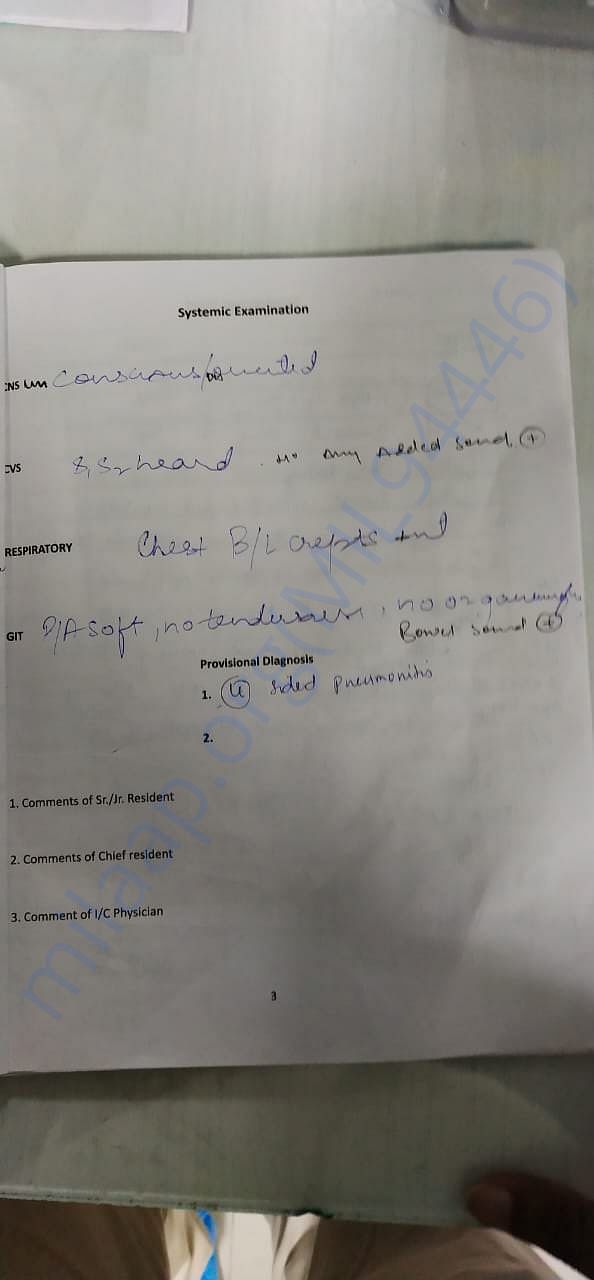 Systemic Examination
CNS Conscious/oriented
CVS S1S2 heard. no any Added sound, +
RESPIRATORY Chest B/L crepts +nt
GIT P/A soft, no tenderness, no organomegaly,
Bowel sound +
Provisional Diagnosis
1. sided pneumonitis
2.
1. Comments of Sr./Jr. Resident
2. Comments of Chief resident
3. Comment of I/C Physician
3
milaap.org(MIL_94446)